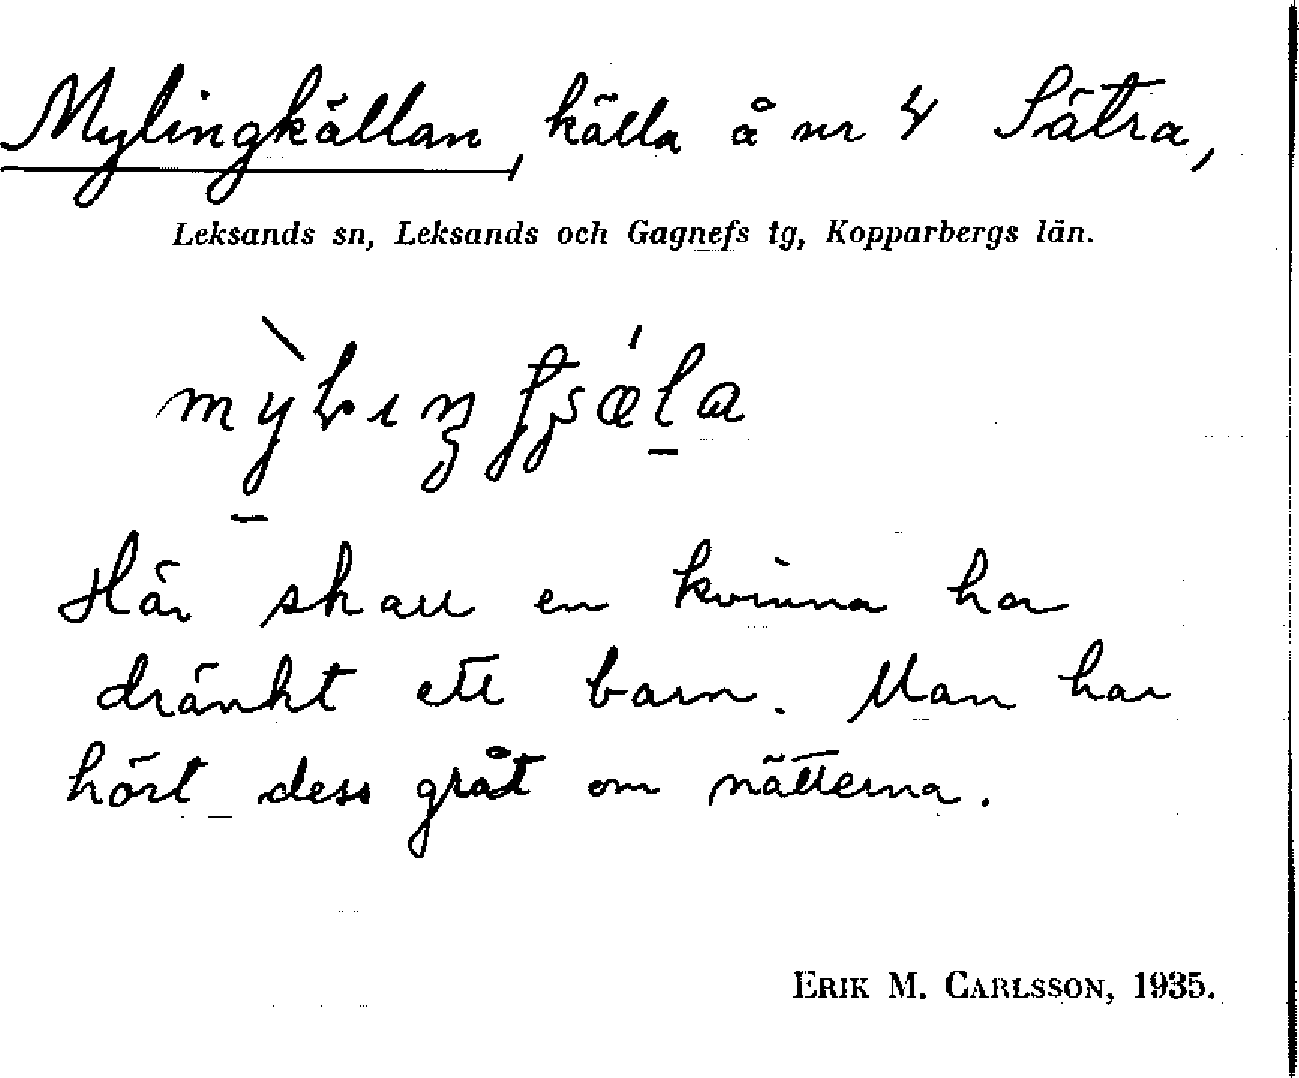 Mylingkällan, källa å nr 4 Sätra,
Leksands sn, Leksands och Gagnefs tg, Kopparbergs län.
Här skall en kvinna ha
dränkt ett barn. Man har
hört dess gråt om nätterna.
ERIK M. CARLSSON, 1935.